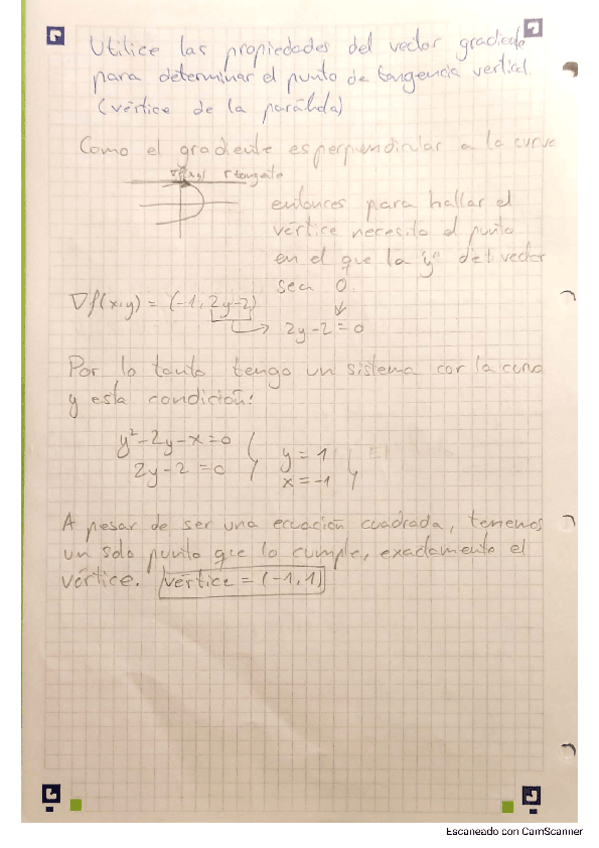 Utilice las propiedades del vector gradiente
para determinar el punto de tangencia vertical.
(vértice de la parábola)
Como el gradiente es perpendicular a la curva
∇f(x,y) r tangente
entonces para hallar el
vértice necesito el punto
en el que la "y" del vector
sea 0.
∇f(x,y) = (-1, 2y-2)
2y-2=0
Por lo tanto tengo un sistema con la curva
y esta condición:
y²-2y-x=0
2y-2=0
y=1
x=-1
A pesar de ser una ecuación cuadrada, tenemos
un solo punto que lo cumple, exactamente el
vértice. vértice = (-1,1)
Escaneado con CamScanner